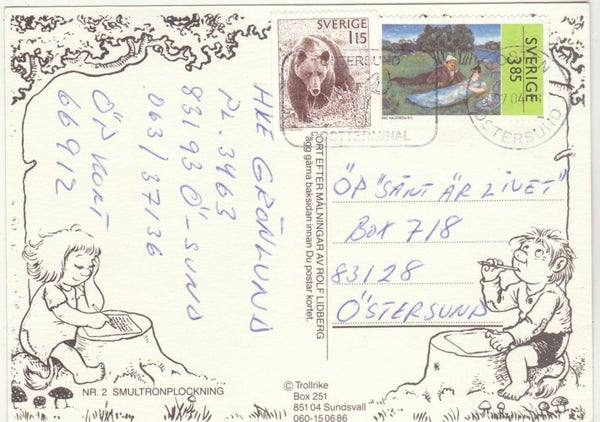 SVERIGE
115
SVERIGE
385
ÖSTERSUND
POSTTERMINAL
ÖSTERSUND
HKE GRÖNLUND
PL. 3463
83193 Ö-SUND
063/37136
ÖP KORT
66912
KORT EFTER MÅLNINGAR AV ROLF LIDBERG
Lägg gärna baksidan innan Du postar kortet.
ÖP "SÅNT ÄR LIVET"
BOX 718
83128
ÖSTERSUND
NR. 2 SMULTRONPLOCKNING
© Trollrike
Box 251
851 04 Sundsvall
060-15 06 86